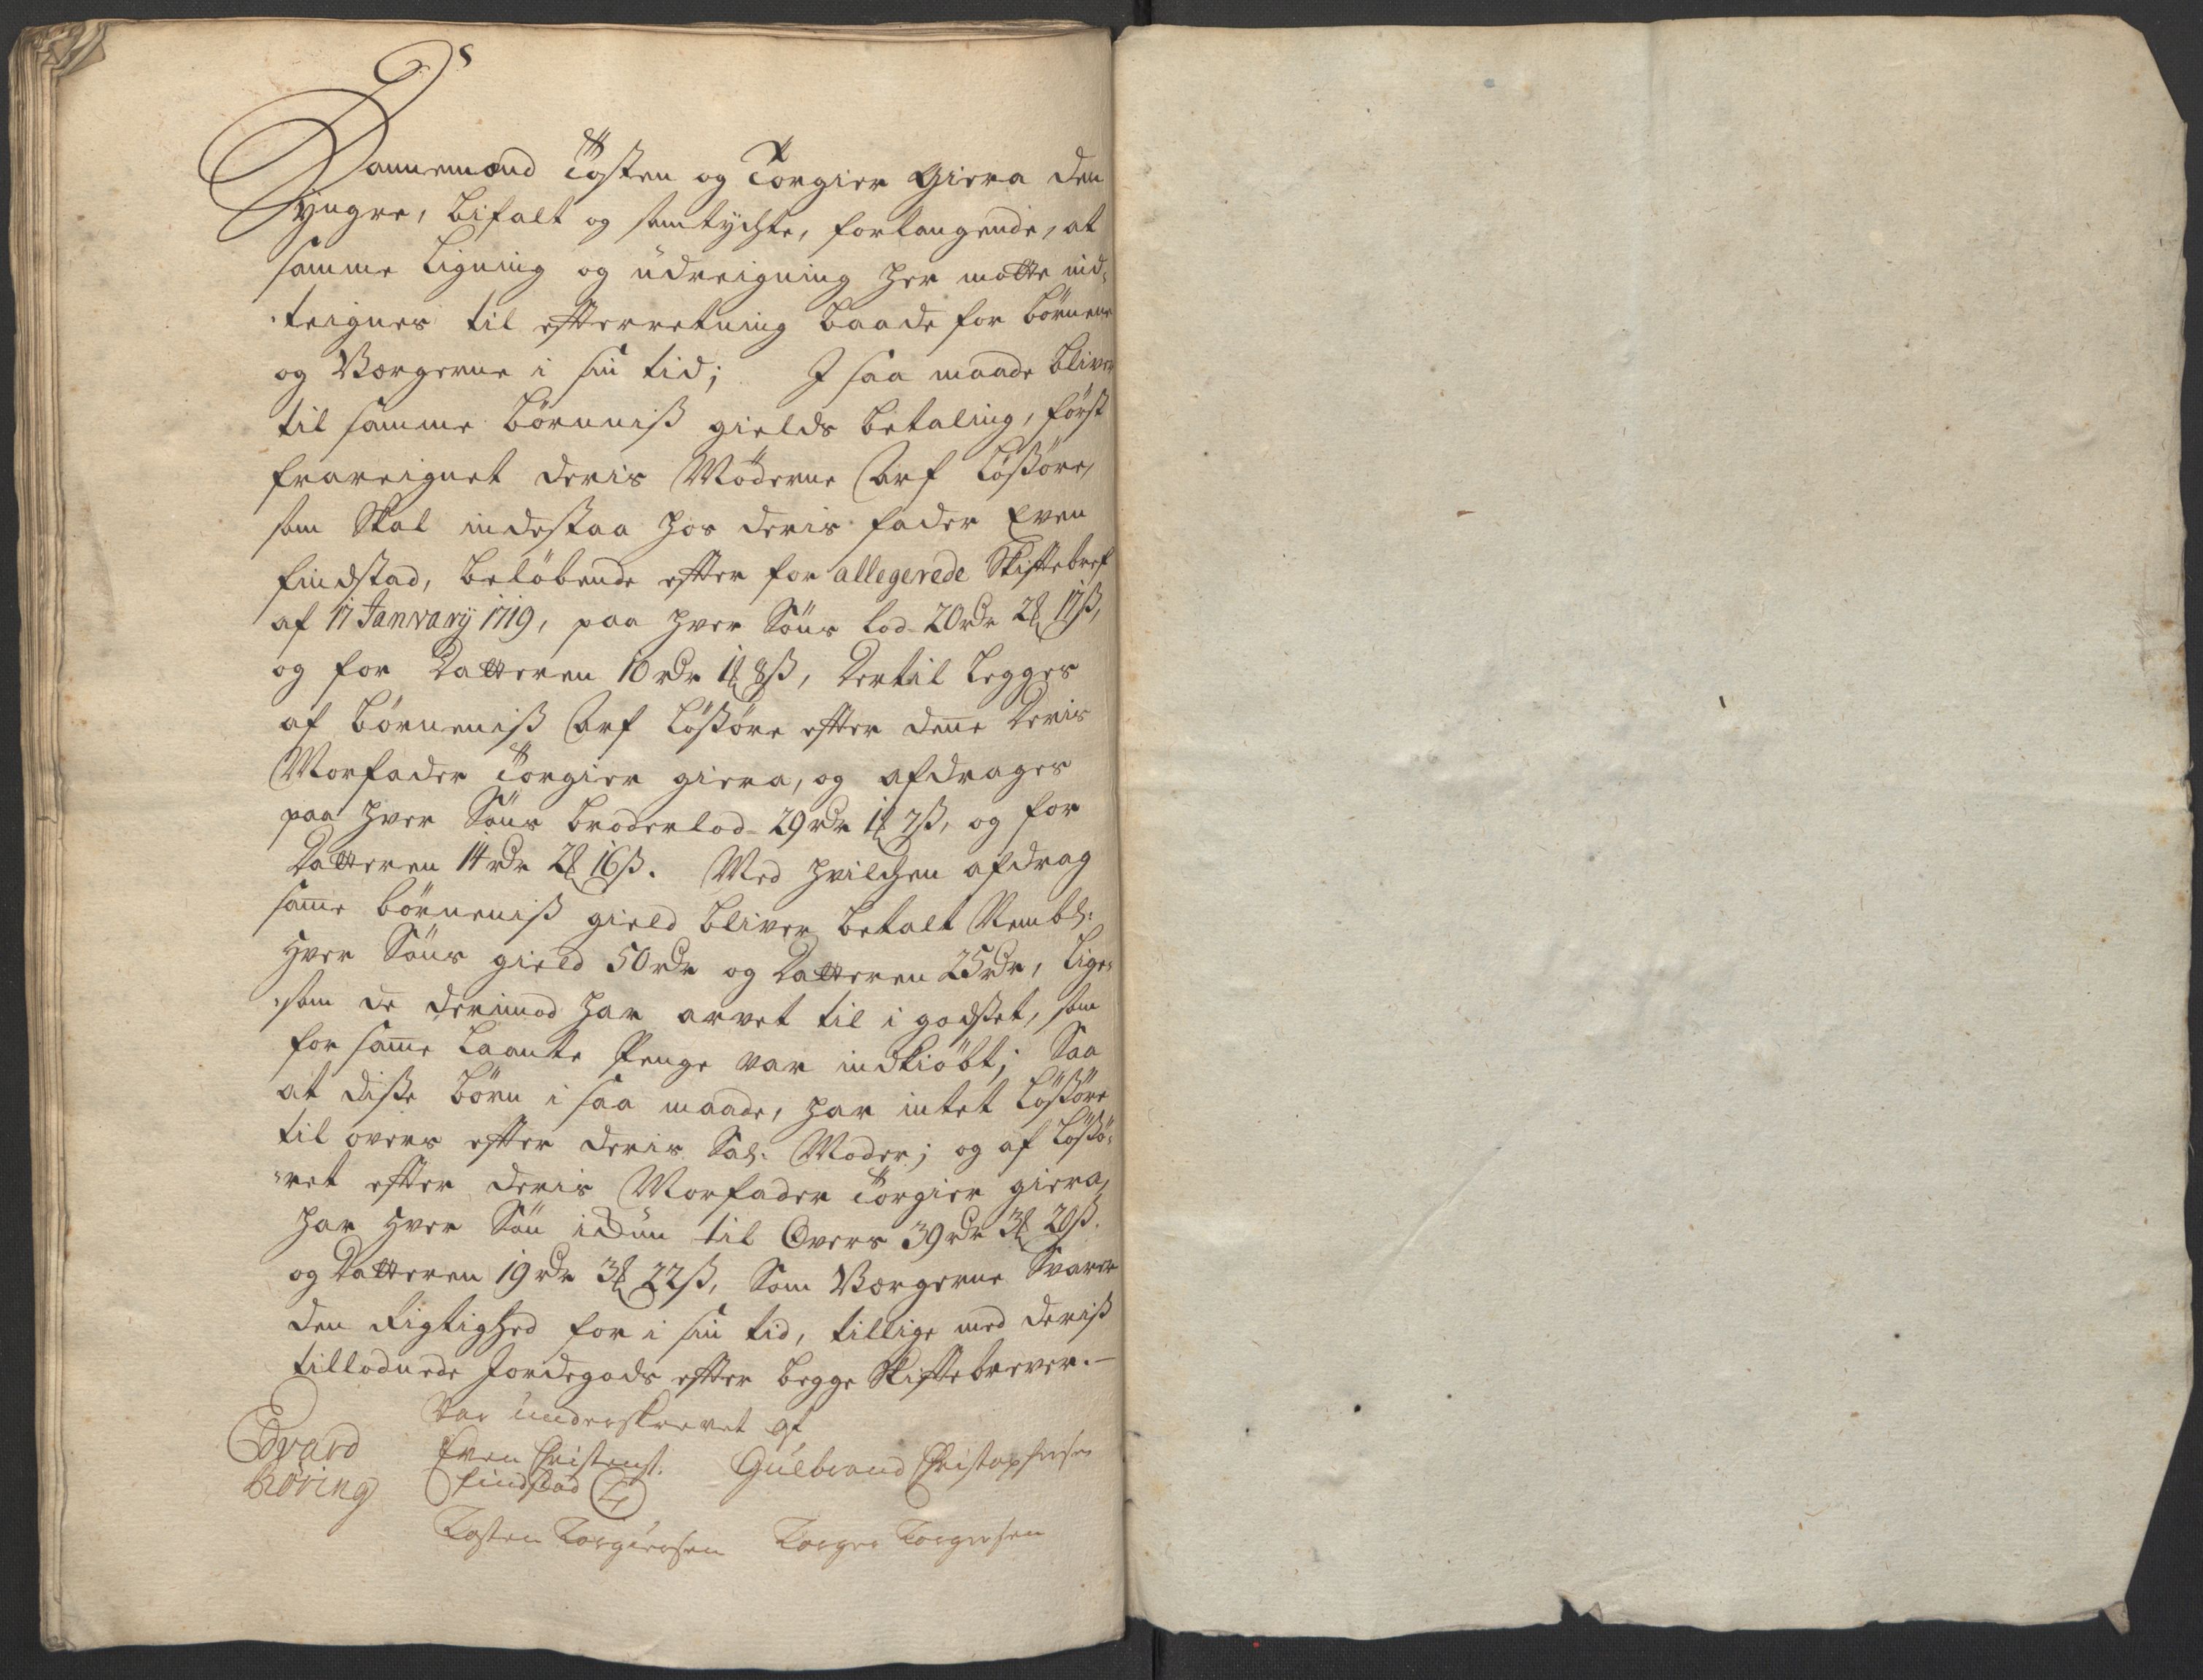 Dannemænd Tosten og Torgier Giera den
yngre, bifalt og samtyckte, forlangende, at
samme Ligning og udreigning her motte ind-
teignes til efterretning baade for børnene
og Værgerne i sin tid; I saa maade bliver
til samme børnniß gields betaling, først
frareignet deris Møderne Arf Løßøre,
som Skal indestaa hos deris fader Even
findstad, beløbende efter for allegerede Skiftebref
af 17 Janvarÿ 1719, paa hver Søns lod 20 rdr 2 ꝑ 17 ß,
og for Datteren 10 rdr 1 ꝑ 8 ß, Dertil Legges
af børneniß Arf Løßøre efter denne Deris
Morfader Torgier giera, og afdrages
paa hver Søns broderlod 29 rdr 1 ꝑ 7 ß, og for
Datteren 14 rdr 2 ꝑ 16 ß. Med hvilchen afdrag
samme børneniß gield bliver betalt Nembl:
Hver Søns gield 50 rdr og Datteren 25 rdr, Lige-
som de derimod har arvet til i godset, som
for samme Laante Penge var indkiøbt; Saa
at disse børn i saa maade, har intet Løßøre
til overs efter deris Sal: Moder; og af Løßø-
ret efter deris Morfader Torgier giera,
har Hver Søn til Overs 39 rdr 3 ꝑ 20 ß.
og Datteren 19 rdr 3 ꝑ 22 ß, Som Værgerne Svarer
den Rigtighed for i sin tid, tillige med deriß
tillodnede Jordegods efter begge Skiftebrever.—
Var underskrevet af
Edvard Even Christens. Gulbrand Christophersen
Røring Findstad
Tosten Torgiersen Torger Torgersen